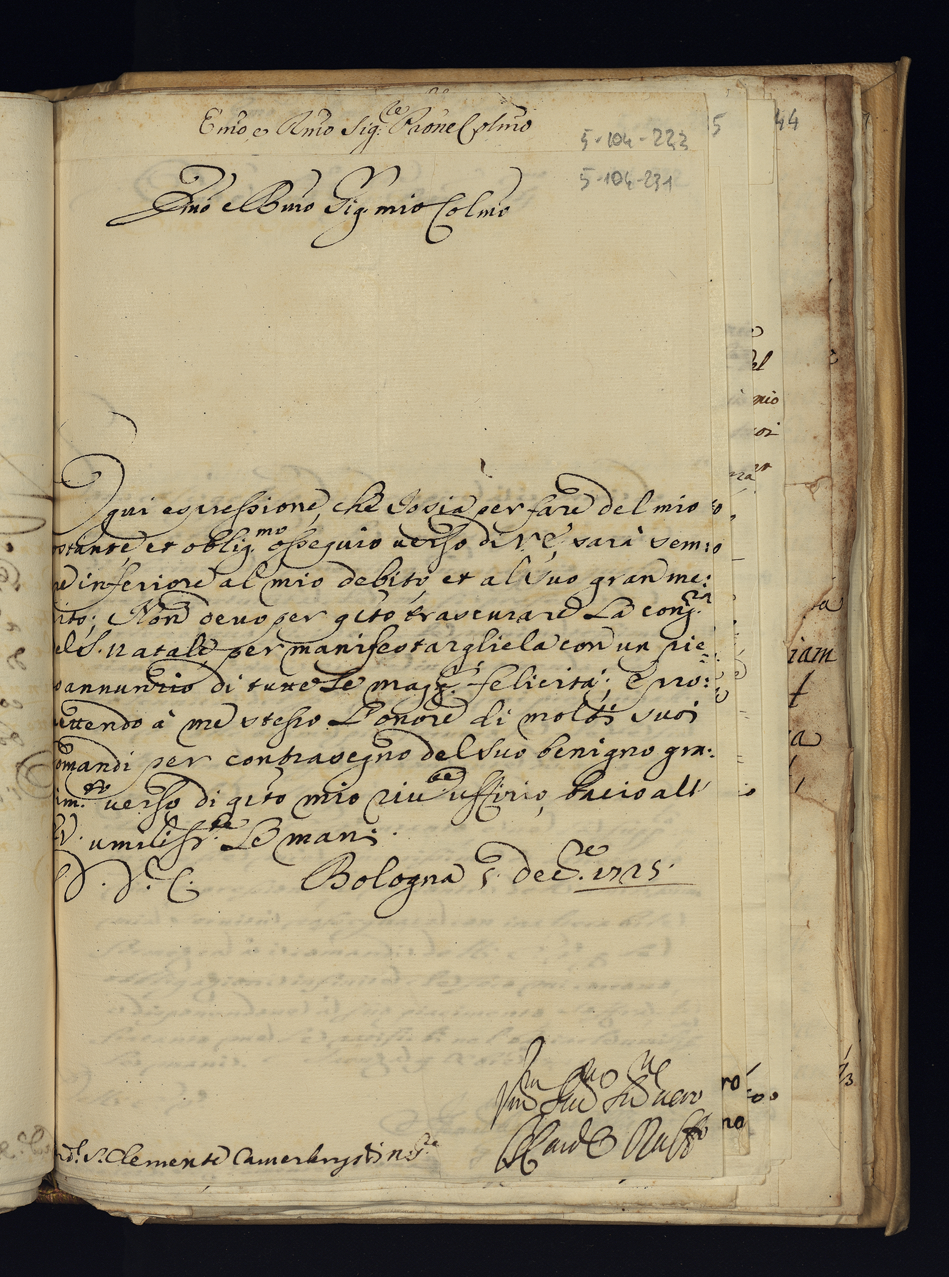 Emo e Rmo Sig.re Prone Colmo
5-104-223
5-104-231
5
44
Emo e Rmo Sig. mio Colmo
Ogni espressione, che Io sia per fare del mio
ostante, et oblig.mo ossequio verso di V.E., sarà sem:
re inferiore al mio debito, et al suo gran me:
ito; Non devo per q̃sto trascurare la cong.ra
el S. Natale, per manifestargliela con un pie=
o annunzio di tutte le magg.ri felicità; E pro:
ettendo à me stesso l'onore di molti suoi
omandi per contrasegno del suo benigno gra:
im.to verso di q̃sto mio riv.te uffizio, bacio all'
E.V. umiliss.te le mani.
D. V. E. Bologna 5. dec.e 1725.
Card. Ruffo
S. Clemente Camerlengo